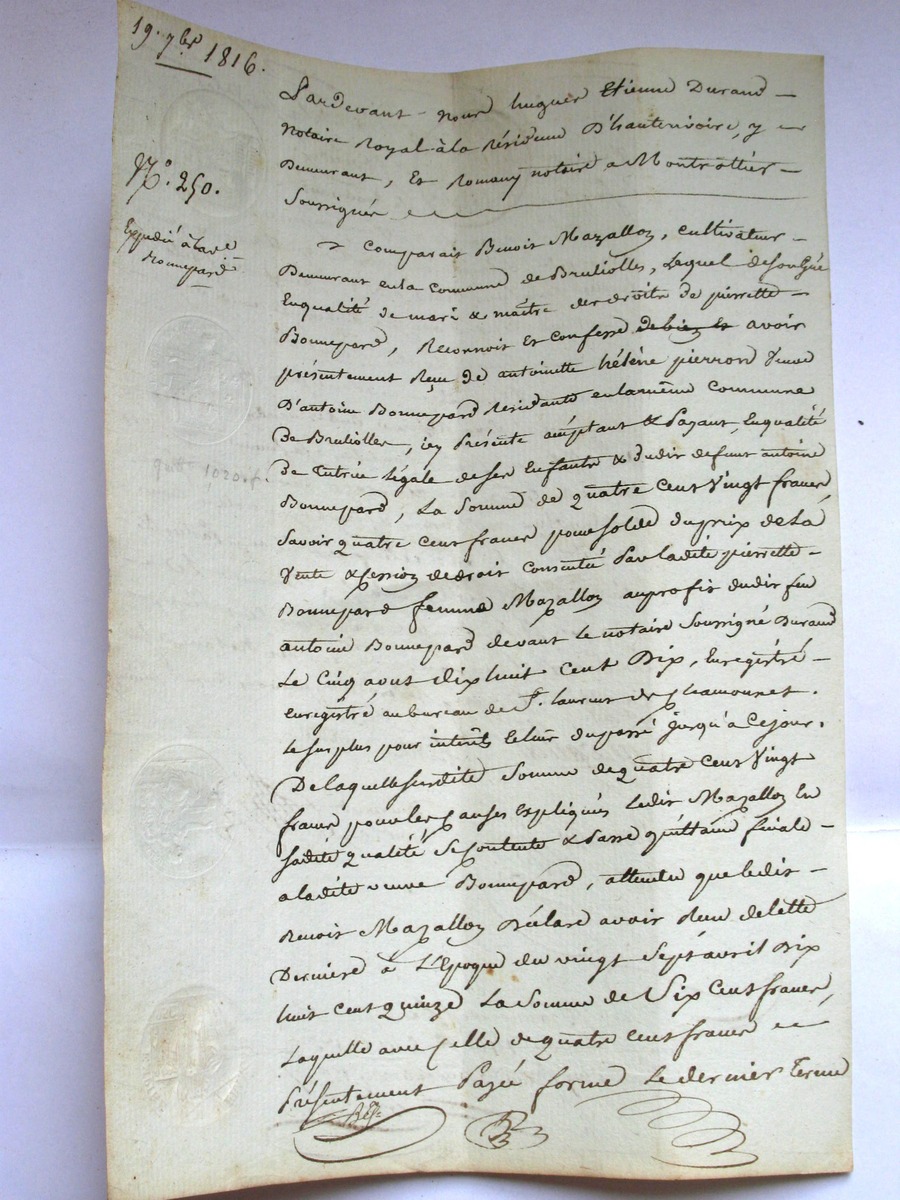 19. 7bre 1816.
N.o 250.
Expédié à la ve
Bonnepard
quitt 1020. f.
Pardevant nous hugues Etienne Durand
Notaire Royal à la Résidence D'hauterivoire, y
Demeurant, Et Romany notaire a Montrottier
Soussignés
Comparait Benoit Mazallon, cultivateur
Demeurant en la Commune de Brulliolles, Lequel de son gré
En qualité de mari & maitre des droits de pierrette
Bonnepard, Reconnoit Et Confesse de bien Et avoir
présentement Reçu de antoinette hélène pierron Veuve
D'antoine Bonnepard Résidante en la même Commune
De Brulliolles, icy Présente acceptant & Payant, En qualité
De Tutrice légale de ses Enfants & dudit defunt antoine
Bonnepard, La Somme de quatre Cent Vingt francs,
Savoir quatre Cent francs pour solde du prix de La
Vente & Cession de droit Consentie Par ladite pierrette
Bonnepard femme Mazallon au profit dudit feu
antoine Bonnepard devant Le notaire Soussigné Durand
Le Cinq aout dix huit Cent Dix, Enregistré
Enregistré au bureau de St. Laurent de Chamousset.
Le surplus pour intérêts Du passé jusqu'a Ce jour.
De laquelle susdite Somme de quatre Cent Vingt
francs pour les Causes Expliquées Ledit Mazallon En
sadite qualité Se Contente & Passe quittance finale
a ladite veuve Bonnepard, attendu que ledit
Benoit Mazallon Déclare avoir Reçu de cette
Dernière à L'Epoque du vingt Sept avril Dix
huit cent quinze La Somme de Six Cent francs,
Laquelle avec Celle de quatre Cent francs
Présentement Payée forme Le dernier Terme